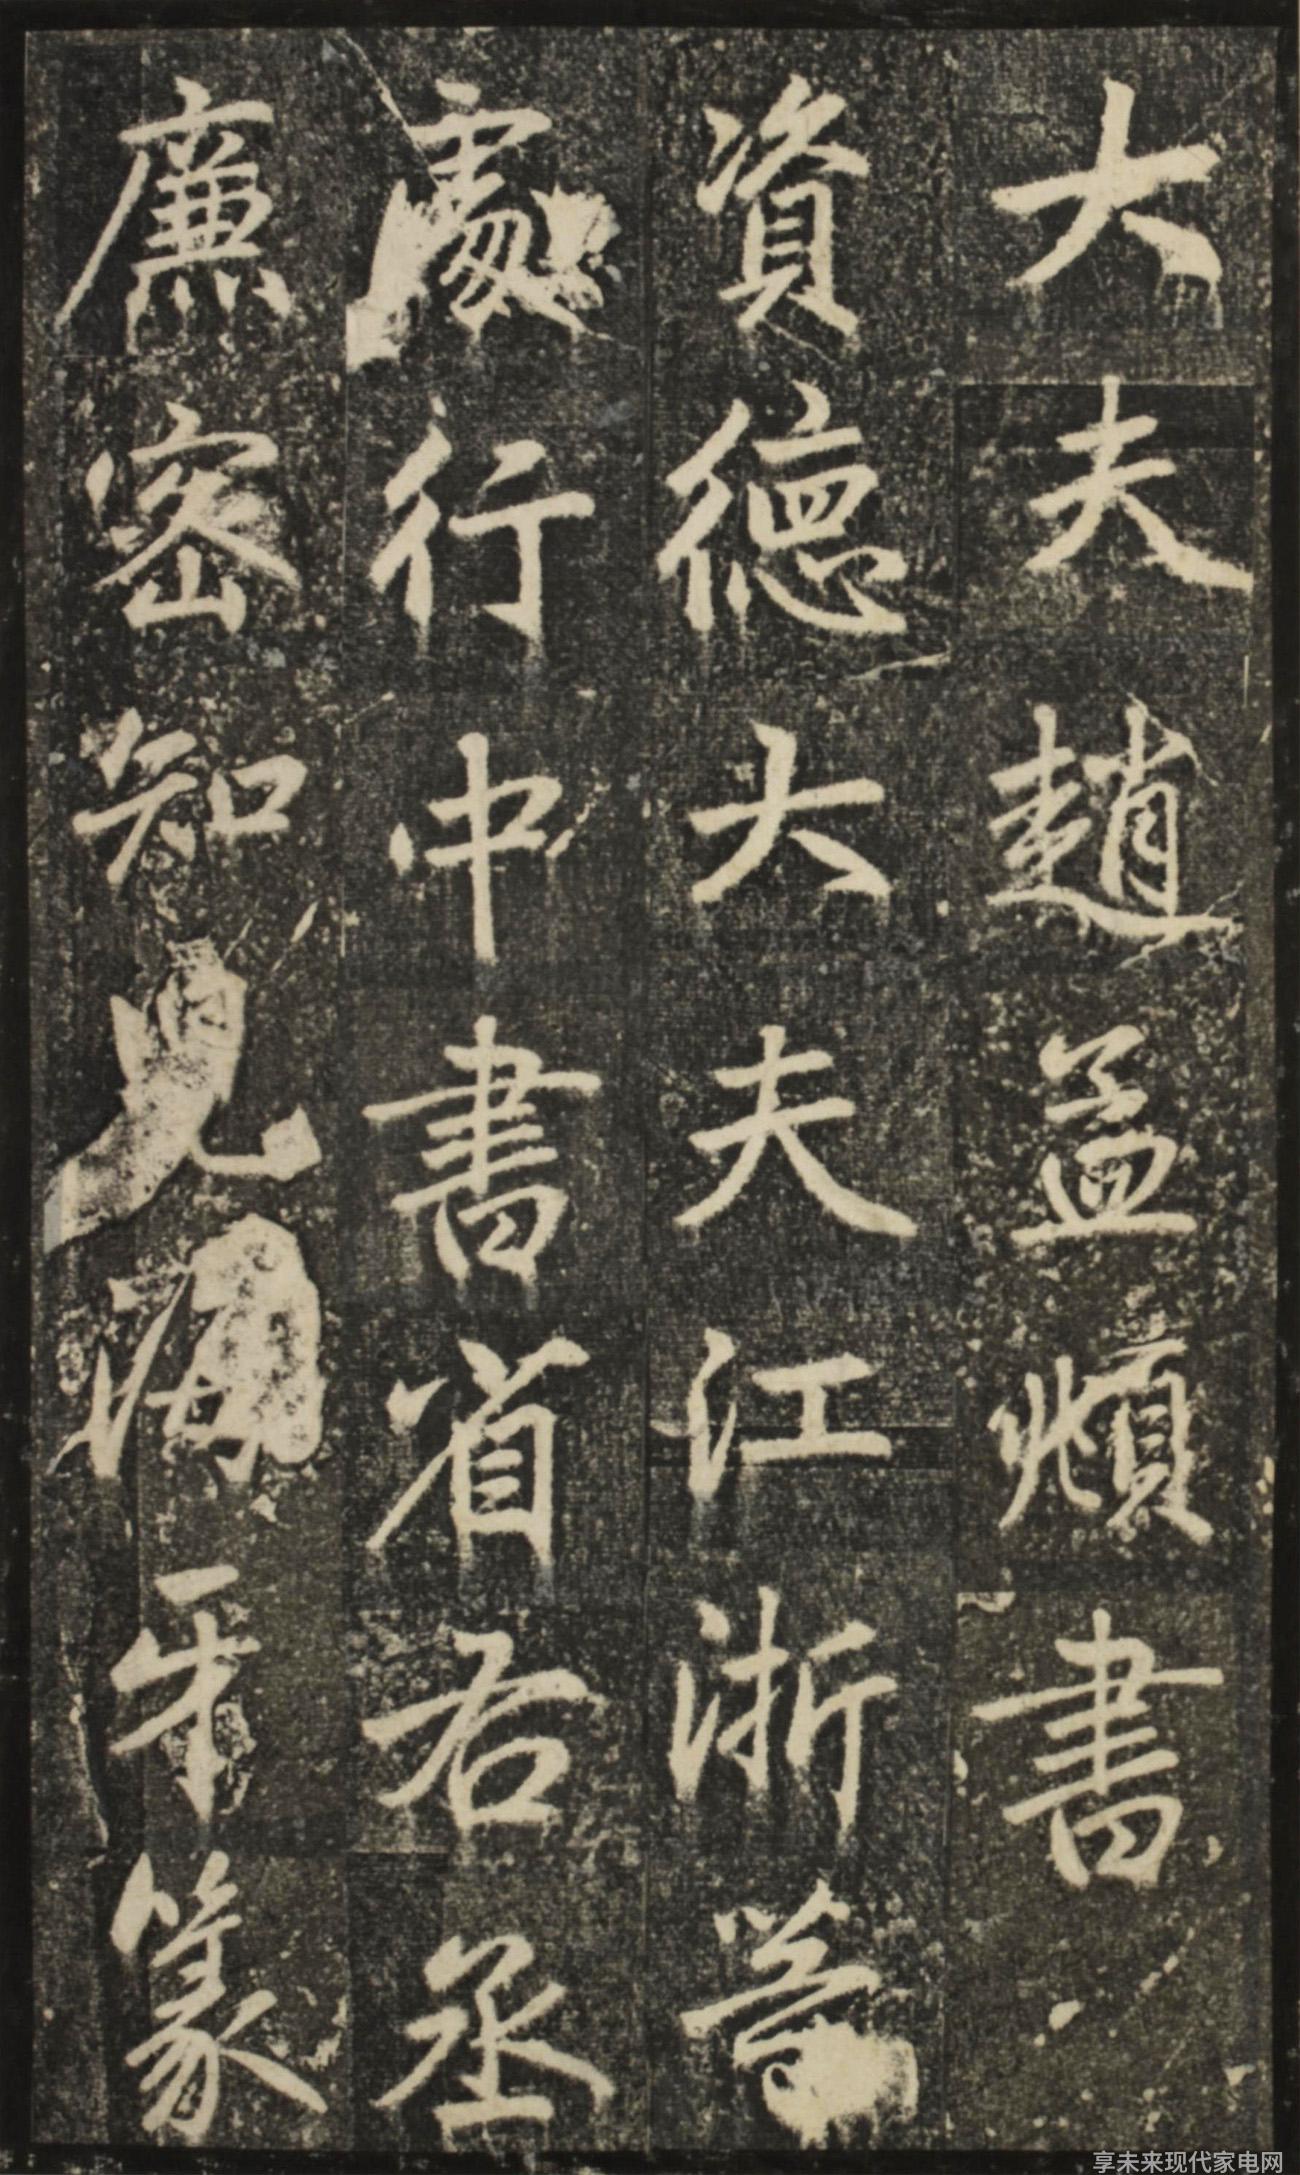 大夫趙孟頫書
資德大夫江浙等
處行中書省右丞
廉密知兒海牙篆
享未来现代家电网